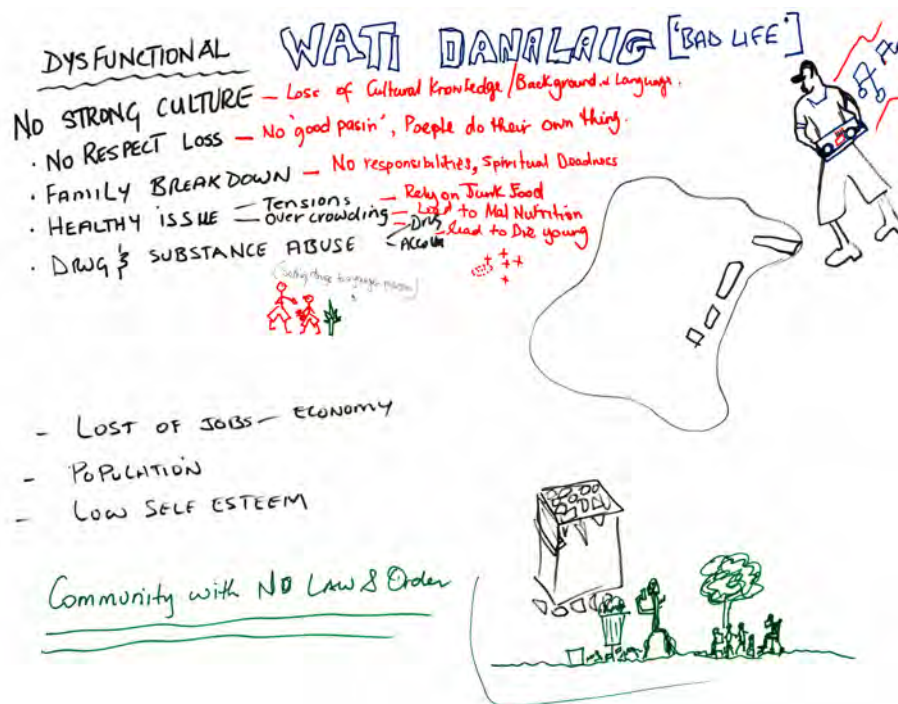 DYSFUNCTIONAL WATI DANALAIG ['BAD LIFE']
NO STRONG CULTURE – Loss of Cultural Knowledge / Background & Language.
· NO RESPECT LOSS – No 'good pasin', Poeple do their own thing.
· FAMILY BREAKDOWN – No responsibilities, Spiritual Deadness
· HEALTHY ISSUE – Tensions – Rely on Junk Food
Over crowding – Lead to Mal Nutrition
· DRUG & SUBSTANCE ABUSE – Drug – lead to Die young
- LOST OF JOBS – ECONOMY
- POPULATION
- LOW SELF ESTEEM
Community with NO LAW & Order